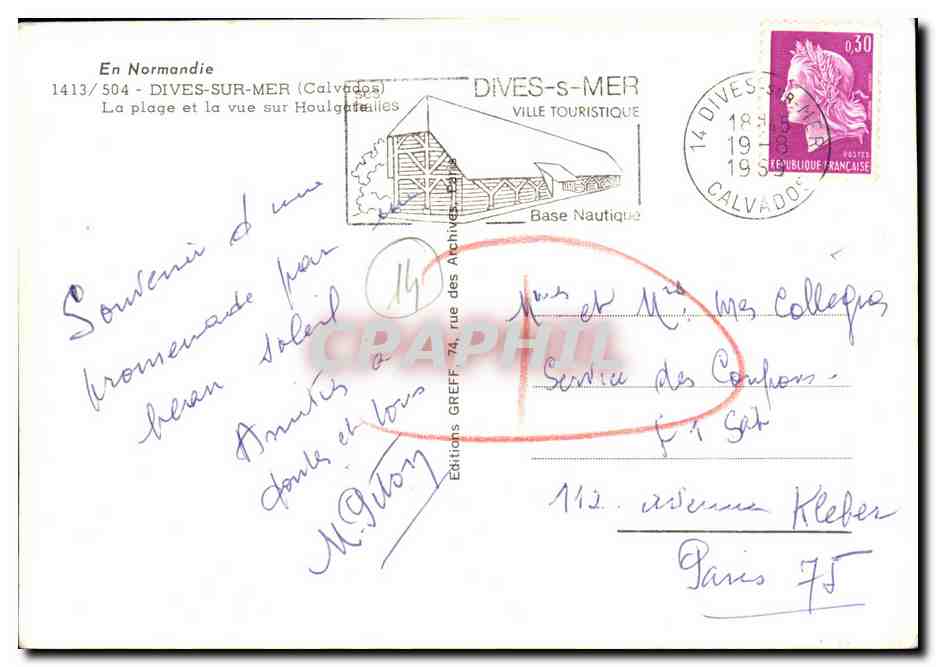 En Normandie
1413/504 - DIVES-SUR-MER (Calvados)
La plage et la vue sur Houlgate
ses
halles
DIVES-s-MER
VILLE TOURISTIQUE
Base Nautique
14 DIVES-SUR-MER
19-8
CALVADOS
0,30
POSTES
RÉPUBLIQUE FRANÇAISE
Souvenir d'une
promenade par un
beau soleil
Amitiés à
toutes et tous
M. Piton
14
Editions GREFF, 74, rue des Archives, Paris
CPAPHIL
Mmes et Mrs mes Collègues
Service des Coupons
112 avenue Kleber
Paris 75